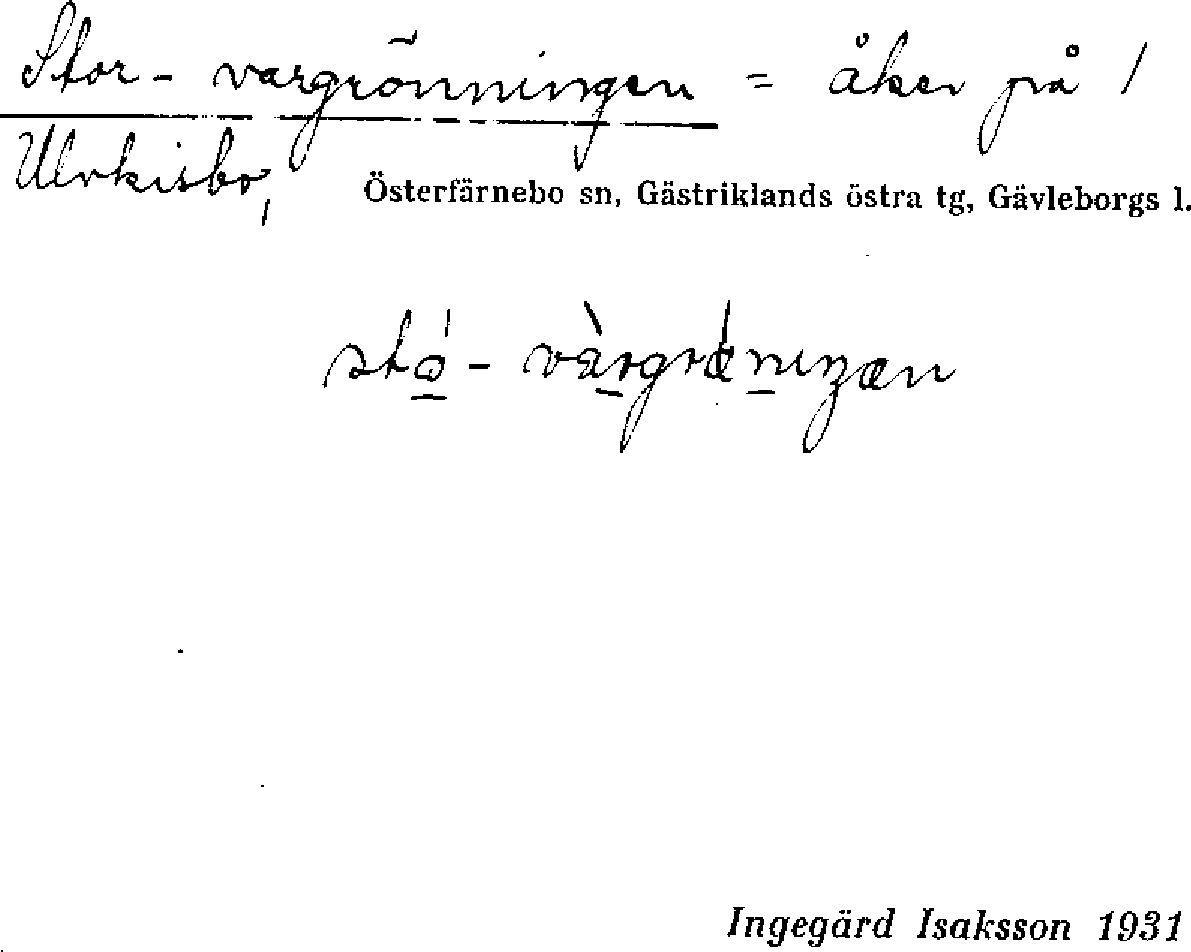 Stor-vargrönningen = åker på 1
Ulvkisbo,
Österfärnebo sn, Gästriklands östra tg, Gävleborgs l.
Ingegärd Isaksson 1931